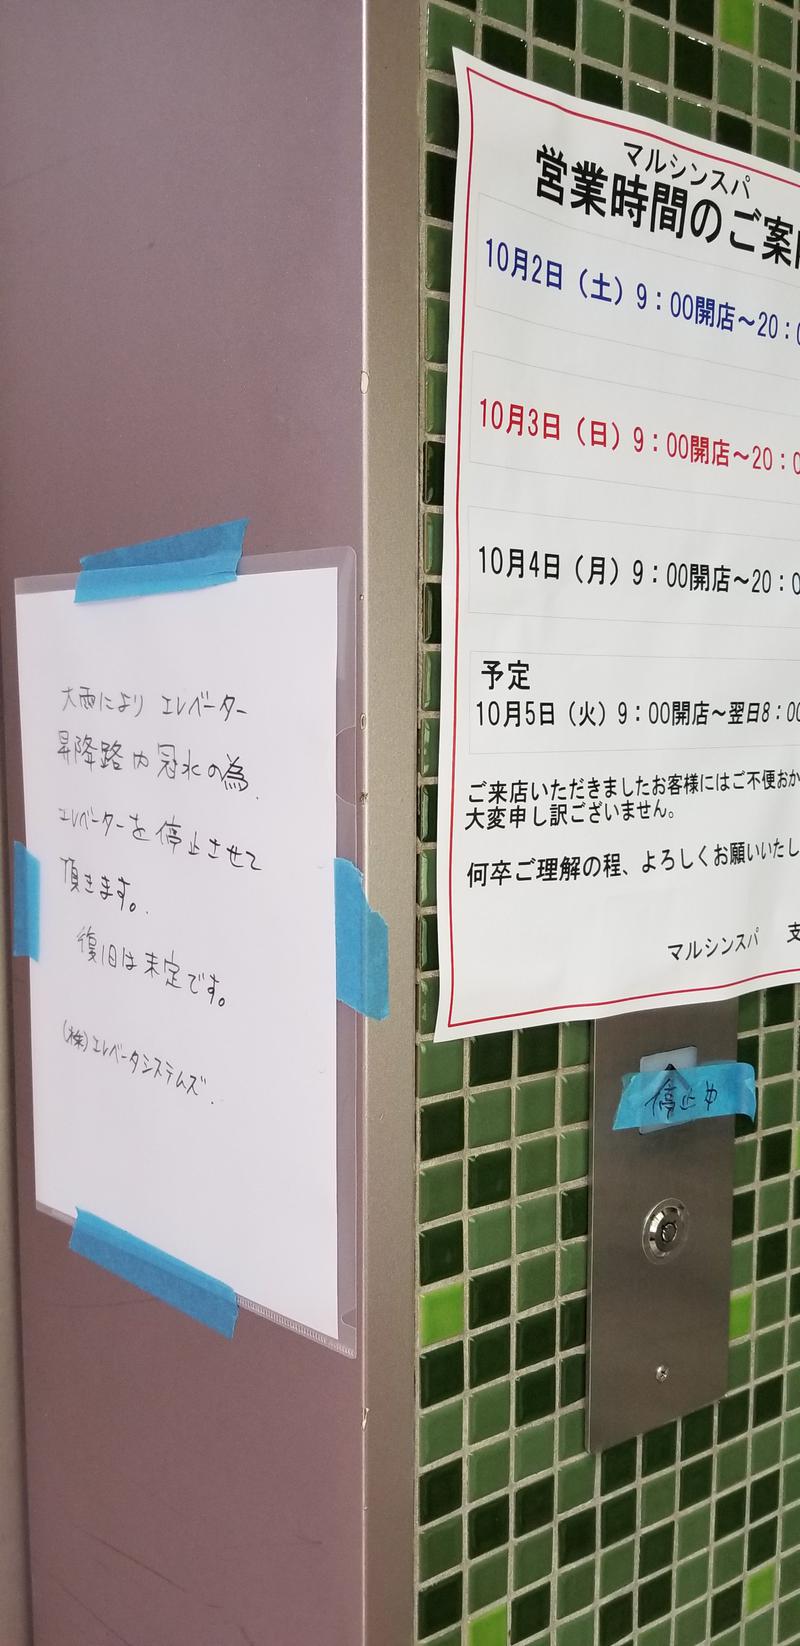 大雨により エレベーター
昇降路内冠水の為、
エレベーターを停止させて
頂きます。
復旧は未定です。
(株)エレベータシステムズ
マルシンスパ
営業時間のご案
10月2日（土）9：00開店～20：0
10月3日（日）9：00開店～20：0
10月4日（月）9：00開店～20：0
予定
10月5日（火）9：00開店～翌日8：00
ご来店いただきましたお客様にはご不便おか
大変申し訳ございません。
何卒ご理解の程、よろしくお願いいたし
マルシンスパ 支
停止中